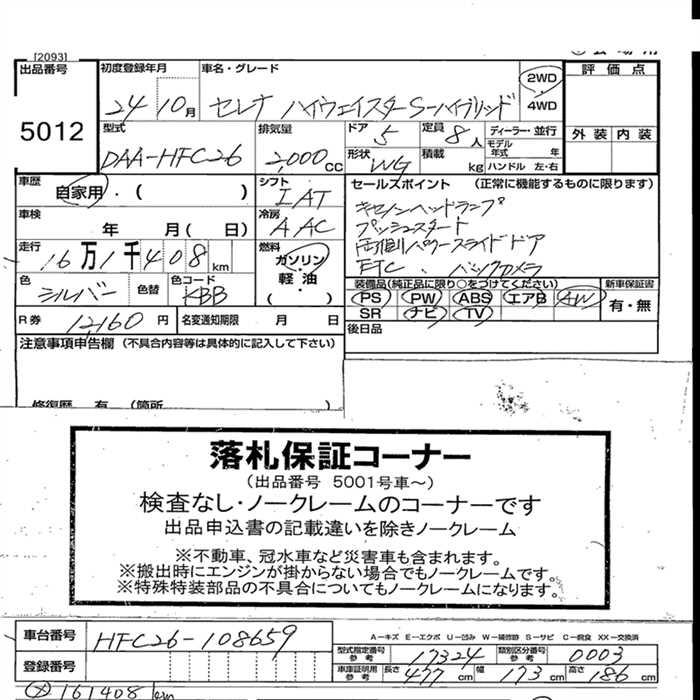 [2093]
出品番号 初度登録年月 車名・グレード 2WD 評価点
5012 24 10月 セレナ ハイウェイスターS-ハイブリッド 4WD
型式 排気量 ドア 定員 ディーラー・並行 外装 内装
DAA-HFC26 2,000cc 5 8人 モデル年式 年
形状 WG 積載 kg ハンドル 左・右
車歴 自家用・( ) シフト IAT セールスポイント (正常に機能するものに限ります)
車検 年 月( 日) 冷房 AAC キセノンヘッドランプ
プッシュスタート
走行 16万1千408km 燃料 ガソリン・軽油 ( ) 両側パワースライドドア
ETC、バックカメラ
色 シルバー 色替 色コード KBB 装備品(純正品に限り○をつけてください) 新車保証書
PS PW ABS エアB AW 有・無
R券 12,160円 名変通知期限 月 日 SR ナビ TV
注意事項申告欄 (不具合内容等は具体的に記入して下さい) 後日品
修復歴 有 (箇所 )
落札保証コーナー
(出品番号 5001号車~)
検査なし・ノークレームのコーナーです
出品申込書の記載違いを除きノークレーム
※不動車、冠水車など災害車も含まれます。
※搬出時にエンジンが掛からない場合でもノークレームです。
※特殊特装部品の不具合についてもノークレームになります。
車台番号 HFC26-108659 A-キズ E-エクボ U-凹み W-補修跡 S-サビ C-腐食 XX-交換済
型式指定番号参考 17324 類別区分番号参考 0003
登録番号 車庫証明用参考 長さ 477cm 幅 173cm 高さ 186cm
161408km